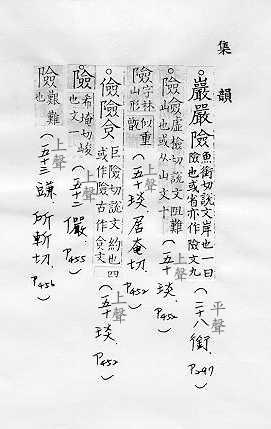 集韻
。巖嚴險魚銜切說文岸也一曰險也或省亦作險文九(二十八銜.P297)平聲
。險㑒虛檢切說文阻難也或从山文十(五十琰.P452)上聲
險字林似重山形(五十琰.居奄切.P452)
。儉險㑒巨險切說文約也或作險古作㑒文四(五十琰P452)上聲
險希埯切峻也文一(五十二儼.P455)上聲
險艱難也(五十三豏所斬切.P456)上聲